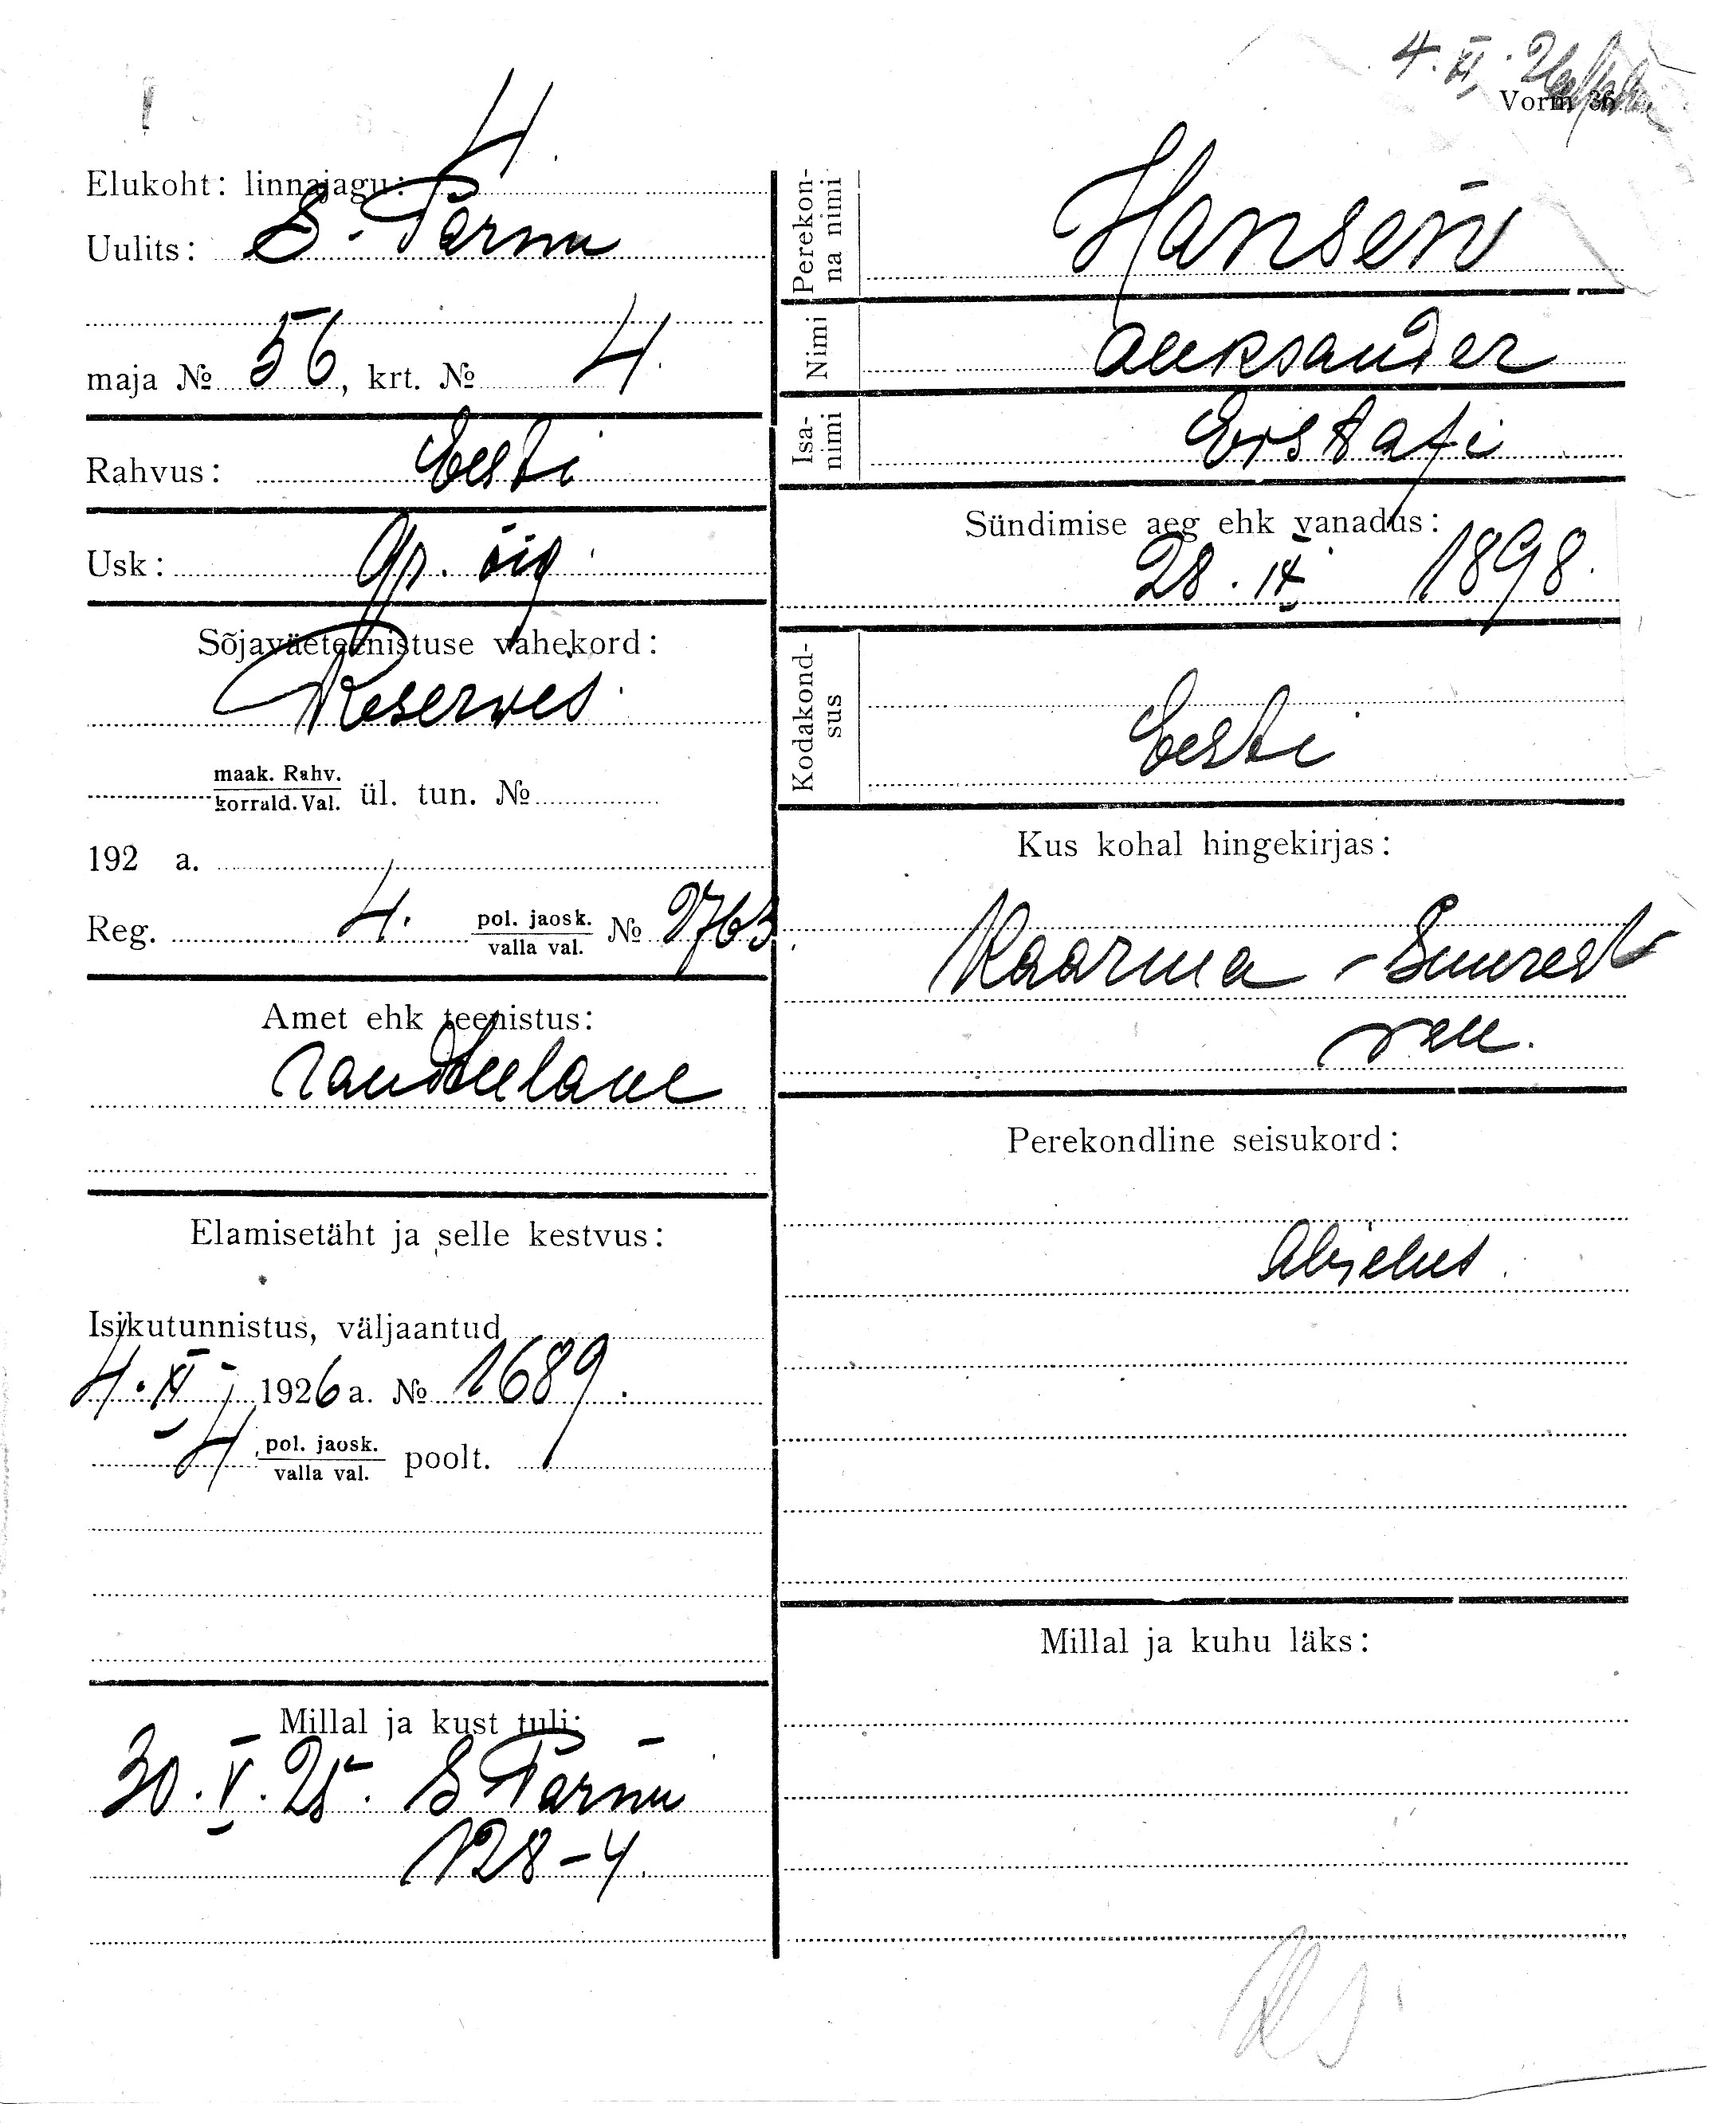 4. XI. 26
Vorm 36
Elukoht: linnajagu: 4.
Uulits: S. Pärnu
maja № 56, krt. № 4.
Rahvus: Eesti
Usk: gr. õig.
Sõjaväeteenistuse vahekord:
Reserves.
maak. Rahv.
korrald. Val. ül. tun. №
192 a.
Reg. 4. pol. jaosk.
valla val. № 2763.
Amet ehk teenistus:
raudteelane
Elamisetäht ja selle kestvus:
Isikutunnistus, väljaantud
4. XI 1926 a. № 1689.
4 pol. jaosk.
valla val. poolt.
Millal ja kust tuli:
30. V. 25. S Pärnu
128-4.
Perekon-
na nimi
Hansen
Nimi
Aleksander
Isa-
nimi
Evstafi
Sündimise aeg ehk vanadus:
28. IX. 1898.
Kodakond-
sus
Eesti
Kus kohal hingekirjas:
Kaarma-Suure
vall.
Perekondline seisukord:
Abielus.
Millal ja kuhu läks: